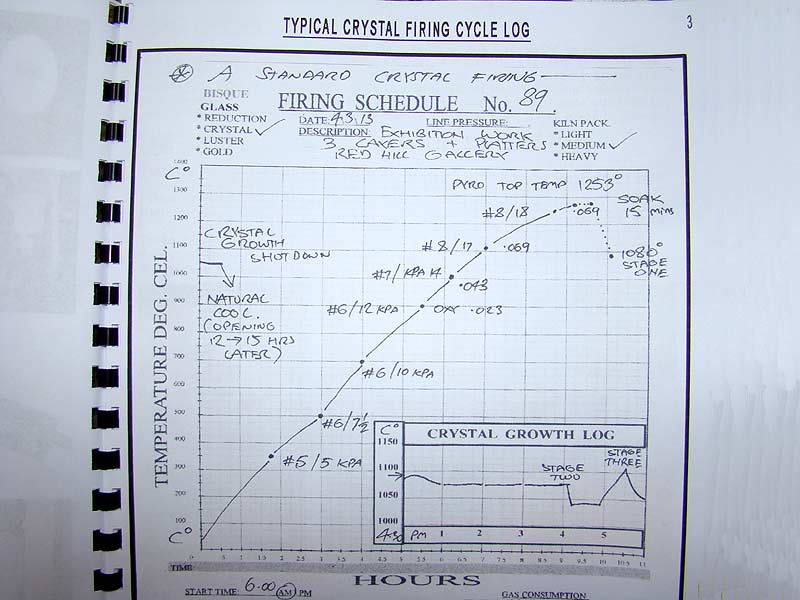 TYPICAL CRYSTAL FIRING CYCLE LOG
3
A STANDARD CRYSTAL FIRING
BISQUE
GLASS
* REDUCTION
* CRYSTAL
* LUSTER
* GOLD
FIRING SCHEDULE No. 89.
DATE: 4.3.13 LINE PRESSURE:
DESCRIPTION: EXHIBITION WORK
3 LAYERS + PLATTERS
RED HILL GALLERY
KILN PACK
* LIGHT
* MEDIUM
* HEAVY
TEMPERATURE DEG. CEL.
C°
1400
1300
1200
1100
1000
900
800
700
600
500
400
300
200
100
C°
PYRO TOP TEMP 1253°
SOAK
15 mins
.069
#8/18
1080°
STAGE
ONE
#8/17
.069
#7/KPA 14
.043
#6/12 KPA
OXY .023
#6/10 KPA
#6/7½
#5/5 KPA
CRYSTAL
GROWTH
SHUT DOWN
NATURAL
COOL.
(OPENING
12→15 HRS
LATER)
CRYSTAL GROWTH LOG
C°
1150
1100
1050
1000
STAGE
TWO
STAGE
THREE
4.30 PM 1 2 3 4 5
TIME .5 1 1.5 2 2.5 3 3.5 4 4.5 5 5.5 6 6.5 7 7.5 8 8.5 9 9.5 10 10.5 11
HOURS
START TIME: 6.00 AM PM
GAS CONSUMPTION